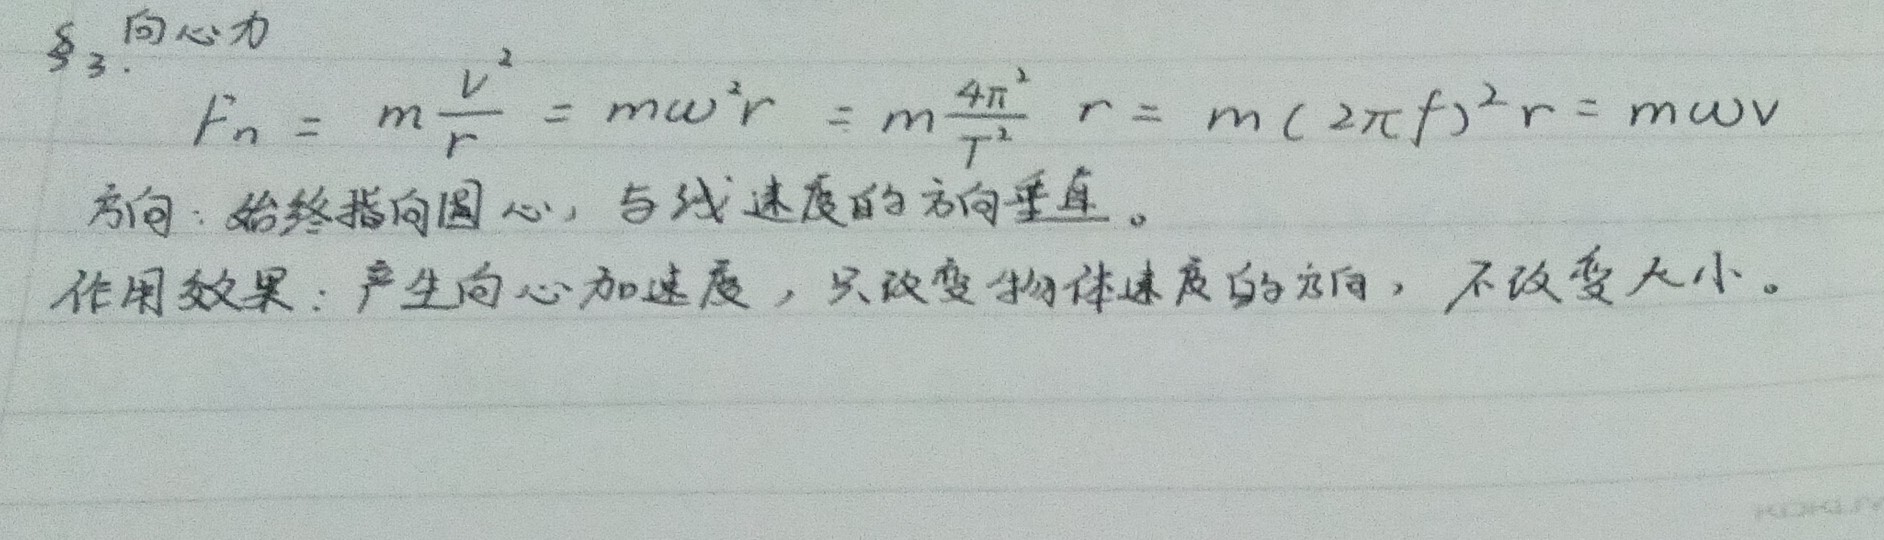 §3. 向心力
Fn = m v²/r = mω²r = m 4π²/T² r = m(2πf)²r = mωv
方向：始终指向圆心，与线速度的方向垂直。
作用效果：产生向心加速度，只改变物体速度的方向，不改变大小。